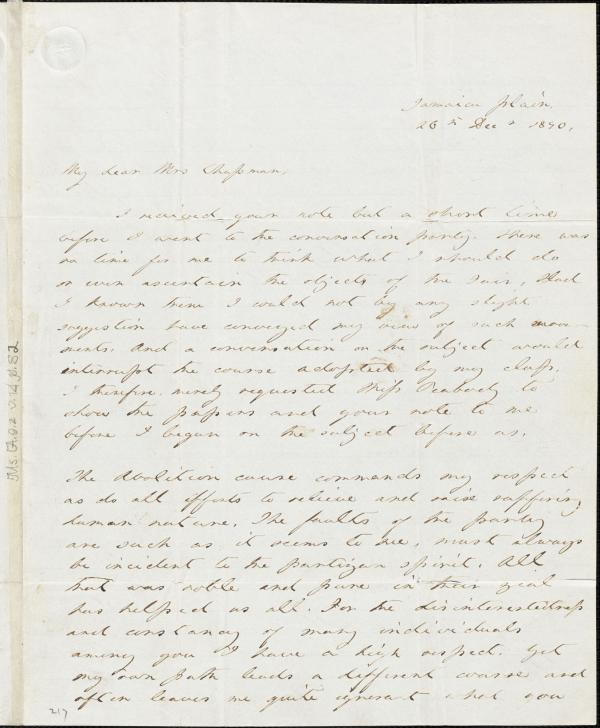 Jamaica Plain.
26th Decr 1840.
My dear Mrs Chapman,
I received your note but a short time
before I went to the conversation party. There was
no time for me to think what I should do
or even ascertain the objects of the Fair. Had
I known them I could not by any slight
suggestion have conveyed my view of such move-
ments. And a conversation on the subject would
interrupt the course adopted by my class.
I therefore, merely requested Miss Peabody to
show the papers and your note to me
before I began on the subject before us.
The Abolition cause commands my respect
as do all efforts to relieve and raise suffering
human nature. The faults of the party
are such as, it seems to me, must always
be incident to the partizan spirit. All
that was noble and pure in their zeal
has helped us all. For the disinterestedness
and constancy of many individuals
among you I have a high respect. Yet
my own path leads a different course and
often leaves me quite ignorant what you
217
Ms. A.9.2 v.14 p.82